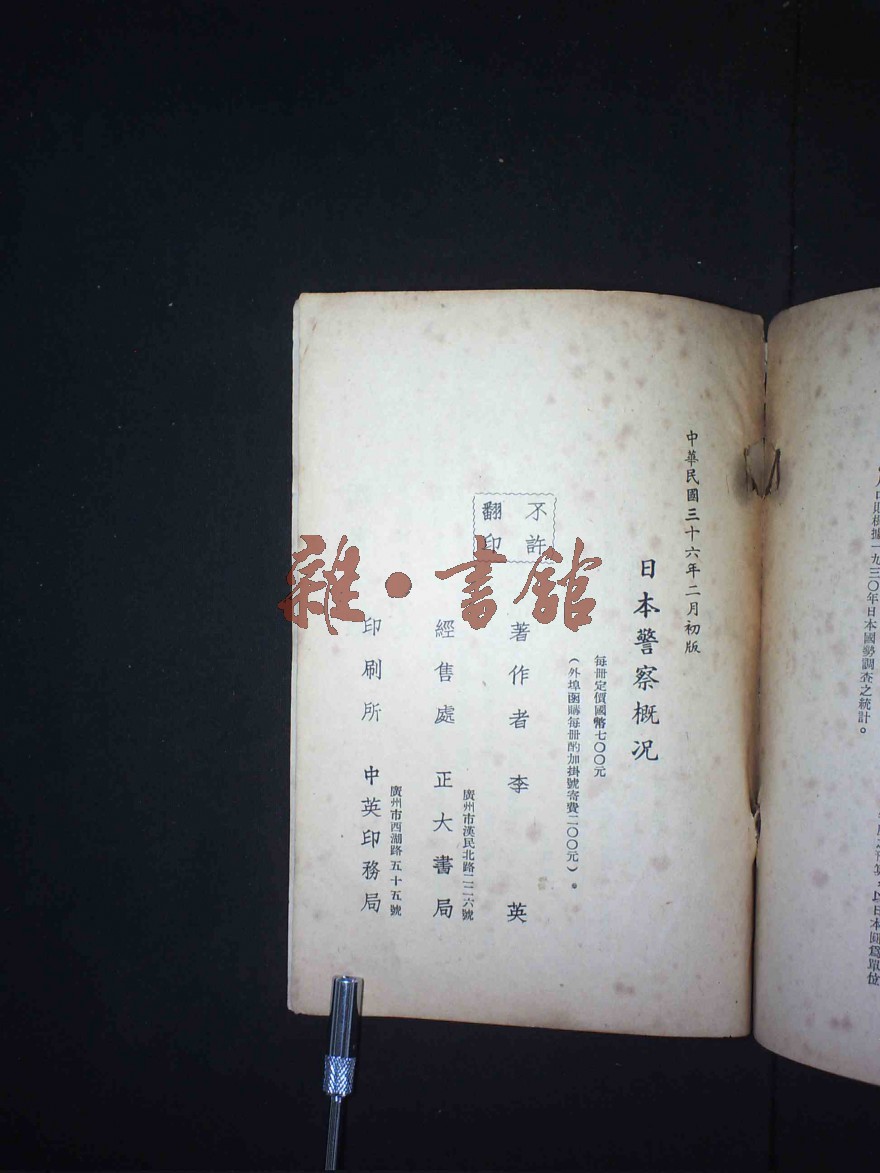 人口則根據一九三〇年日本國勢調查之統計。
以日本圓爲單位
中華民國三十六年二月初版
日本警察概况
每冊定價國幣七〇〇元
(外埠函購每冊酌加掛號寄費二〇〇元)。
不許
翻印
著作者 李 英
廣州市漢民北路二二六號
經售處 正大書局
廣州市西湖路五十五號
印刷所 中英印務局
雜·書館